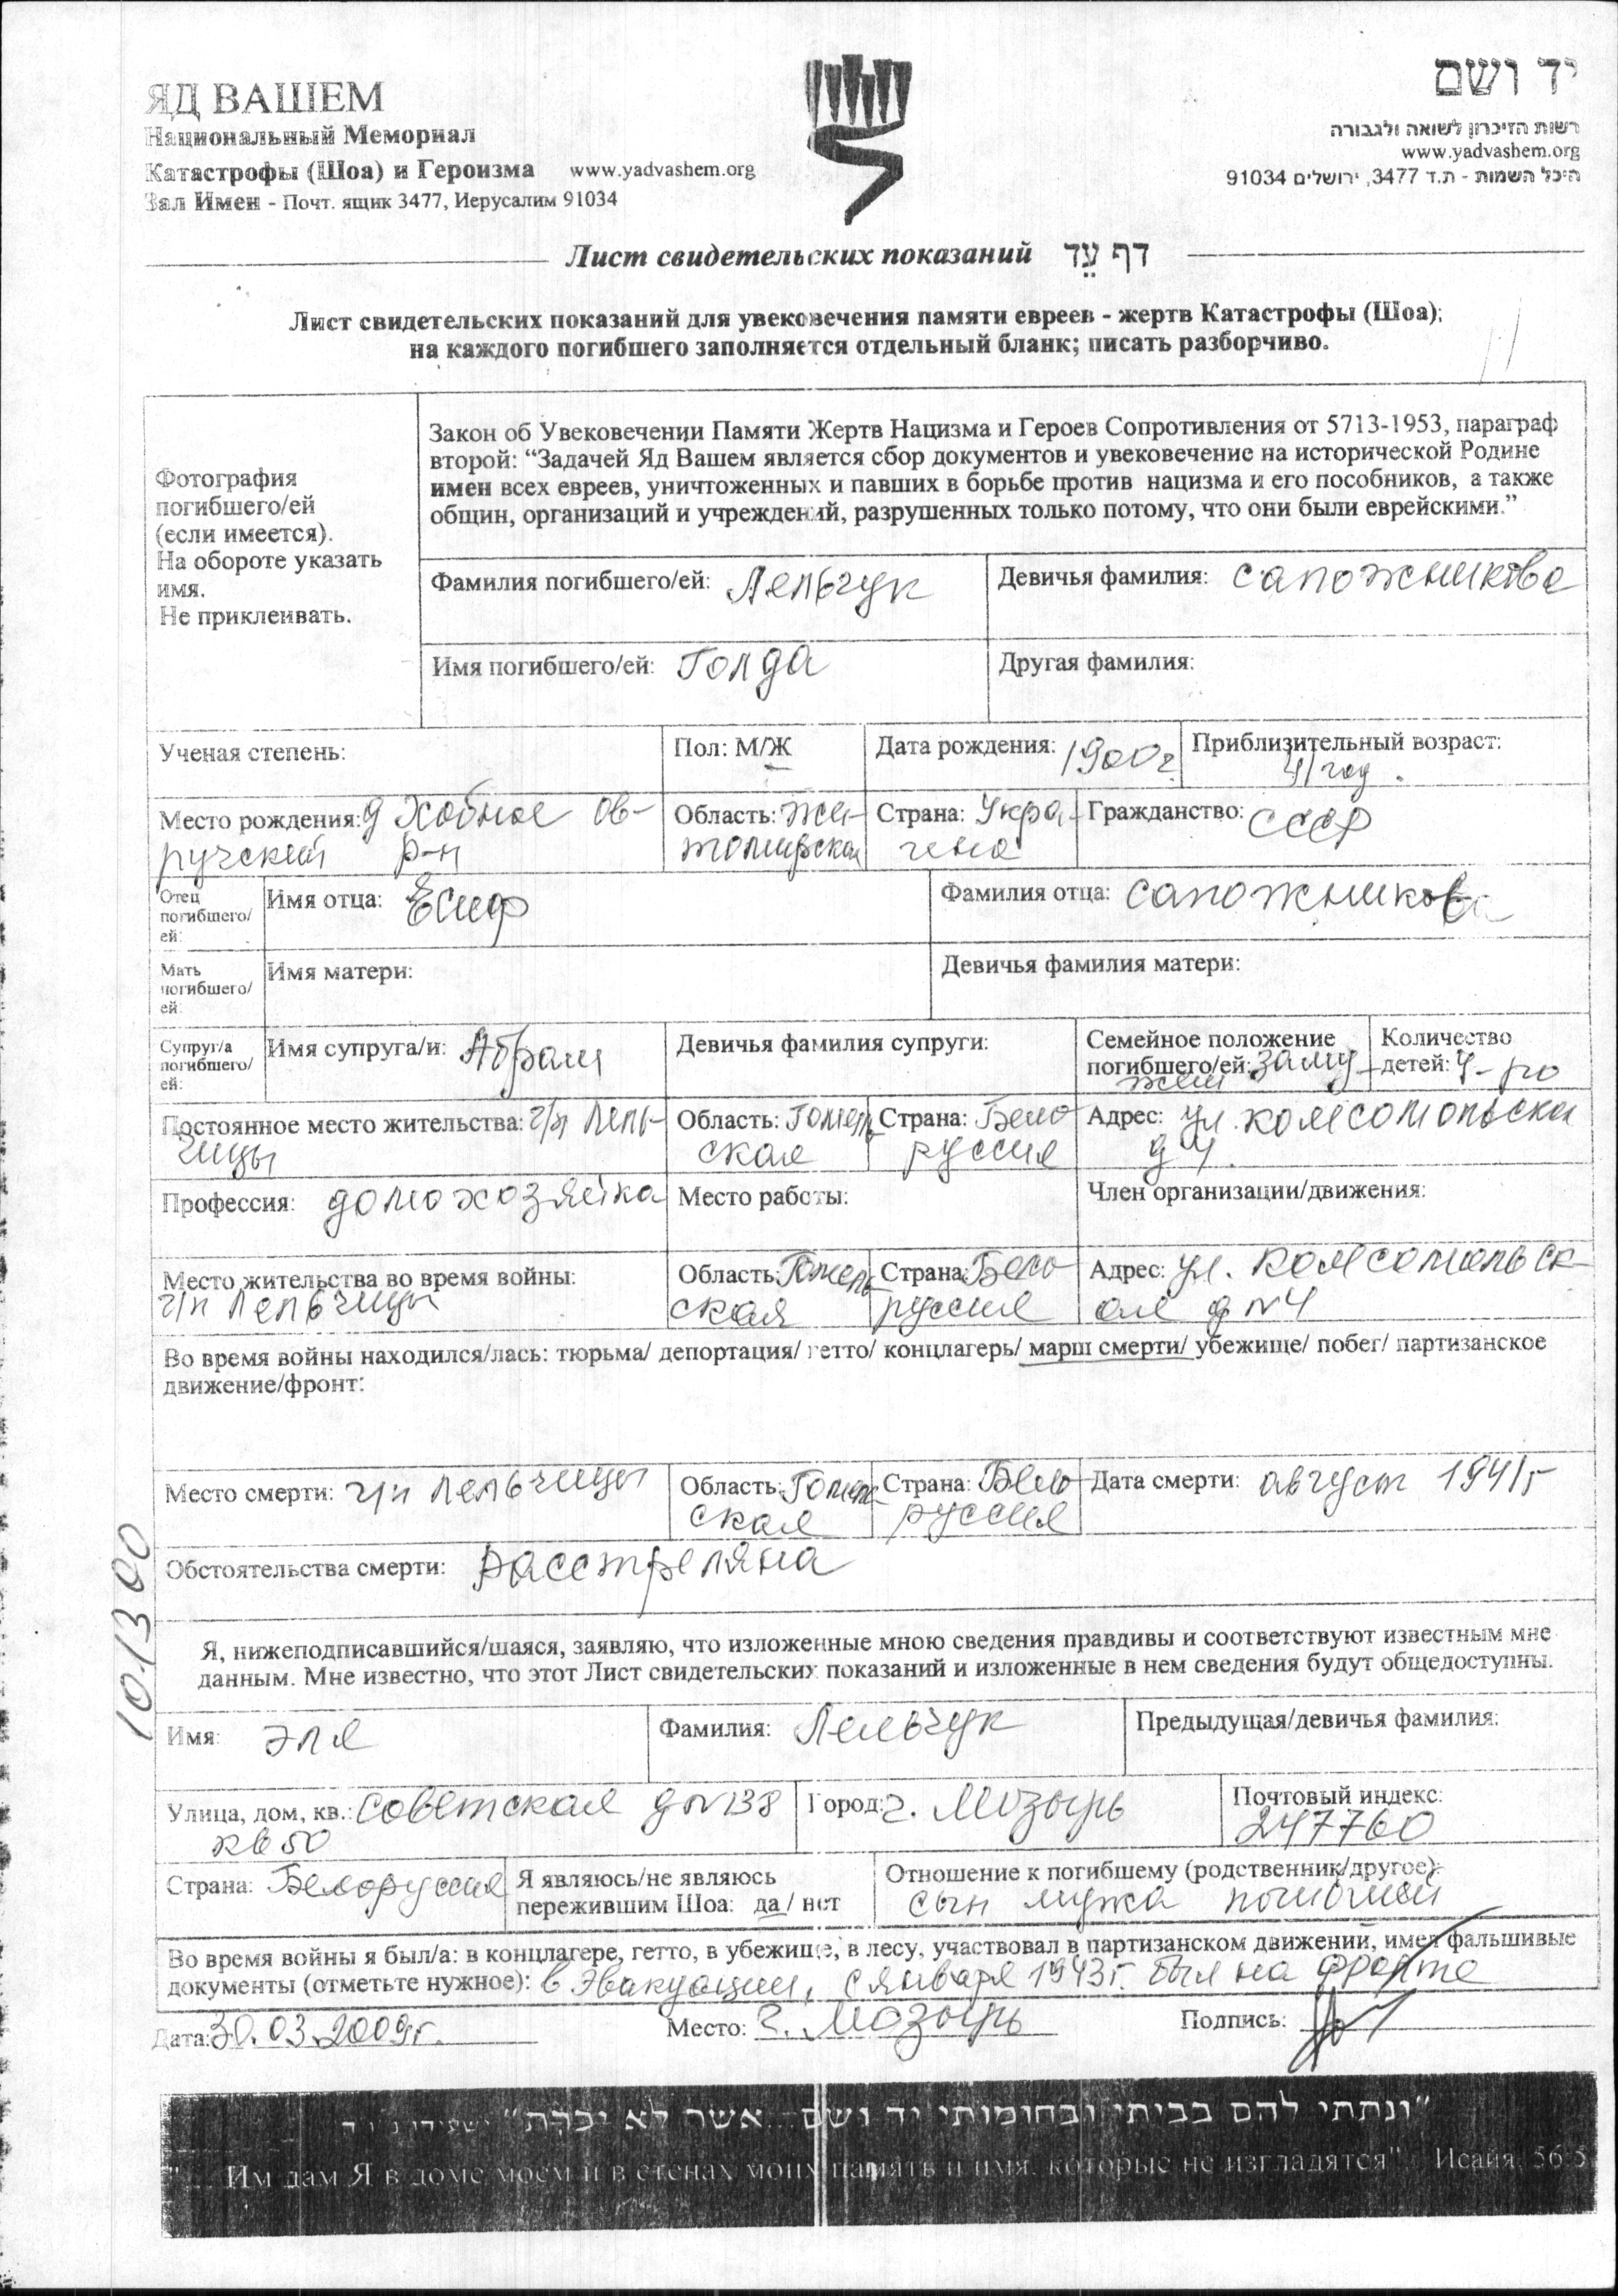 ЯД ВАШЕМ
Национальный Мемориал
Катастрофы (Шоа) и Героизма www.yadvashem.org
Зал Имен - Почт. ящик 3477, Иерусалим 91034
יד ושם
רשות הזיכרון לשואה ולגבורה
www.yadvashem.org
היכל השמות - ת.ד 3477, ירושלים 91034
Лист свидетельских показаний דף עֵד
Лист свидетельских показаний для увековечения памяти евреев - жертв Катастрофы (Шоа);
на каждого погибшего заполняется отдельный бланк; писать разборчиво.
Фотография
погибшего/ей
(если имеется).
На обороте указать
имя.
Не приклеивать.
Закон об Увековечении Памяти Жертв Нацизма и Героев Сопротивления от 5713-1953, параграф
второй: “Задачей Яд Вашем является сбор документов и увековечение на исторической Родине
имен всех евреев, уничтоженных и павших в борьбе против нацизма и его пособников, а также
общин, организаций и учреждений, разрушенных только потому, что они были еврейскими.”
Фамилия погибшего/ей: Лельчук
Девичья фамилия: Сапожникова
Имя погибшего/ей: Голда
Другая фамилия:
Ученая степень:
Пол: М/Ж
Дата рождения: 1900г
Приблизительный возраст:
41 год.
Место рождения: д Хобное Ов-
ручский р-н
Область: Жи-
томирская
Страна: Укра-
ина
Гражданство: СССР
Отец
погибшего/
ей:
Имя отца: Есиф
Фамилия отца: Сапожникова
Мать
погибшего/
ей:
Имя матери:
Девичья фамилия матери:
Супруг/а
погибшего/
ей:
Имя супруга/и: Абрам
Девичья фамилия супруги:
Семейное положение
погибшего/ей: заму-
жем
Количество
детей: 4-ро
Постоянное место жительства: г/п Лель-
чицы
Область: Гомель
ская
Страна: Бело
руссия
Адрес: ул. Комсомольская
д 4.
Профессия: домохозяйка
Место работы:
Член организации/движения:
Место жительства во время войны:
г/п Лельчицы
Область: Гомель
ская
Страна: Бело
руссия
Адрес: ул. Комсомольск-
ая д №4
Во время войны находился/лась: тюрьма/ депортация/ гетто/ концлагерь/ марш смерти/ убежище/ побег/ партизанское
движение/фронт:
Место смерти: г/п Лельчицы
Область: Гомель
ская
Страна: Бело
руссия
Дата смерти: август 1941г
Обстоятельства смерти: Расстреляна
101300
Я, нижеподписавшийся/шаяся, заявляю, что изложенные мною сведения правдивы и соответствуют известным мне
данным. Мне известно, что этот Лист свидетельских показаний и изложенные в нем сведения будут общедоступны.
Имя: Эля
Фамилия: Лельчук
Предыдущая/девичья фамилия:
Улица, дом, кв.: Советская д №138
кв 50
Город: г. Мозырь
Почтовый индекс:
247760
Страна: Белоруссия
Я являюсь/не являюсь
пережившим Шоа: да / нет
Отношение к погибшему (родственник/другое):
сын мужа
Во время войны я был/а: в концлагере, гетто, в убежище, в лесу, участвовал в партизанском движении, имел фальшивые
документы (отметьте нужное): в эвакуации, с января 1943г. был на фронте
Дата: 30.03.2009г.
Место: г. Мозырь
Подпись:
"ונתתי להם בביתי ובחומותי יד ושם...אשר לא יכרת" ישעיהו נ"ו ה
"...Им дам Я в доме моем и в стенах моих память и имя, которые не изгладятся". Исайя, 56:5